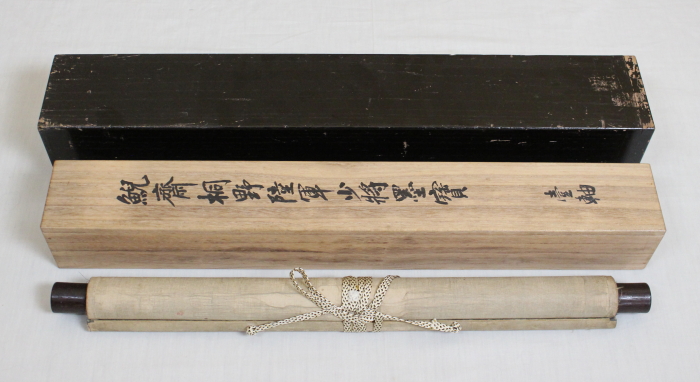 鯢齋桐野陸軍少将墨寶 壹軸